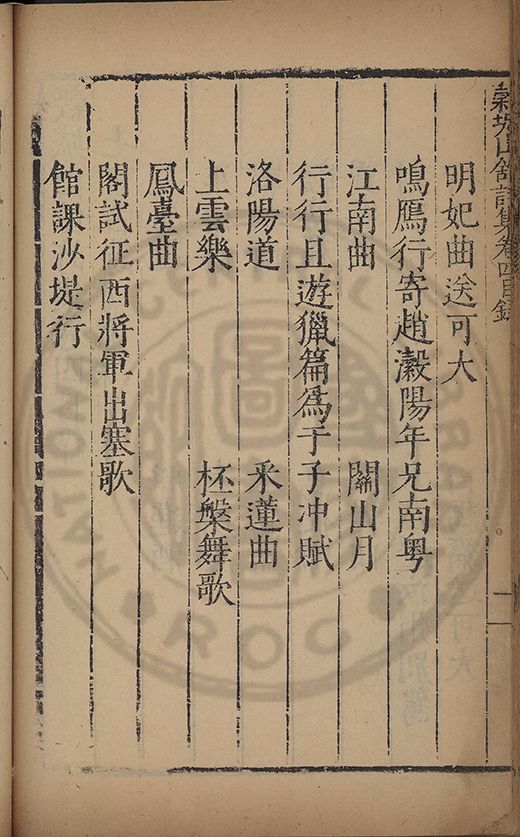 穀城山館詩集卷四目錄
一
明妃曲送可大
鳴鴈行寄趙瀫陽年兄南粵
江南曲 關山月
行行且遊獵篇為于子冲賦
洛陽道 采蓮曲
上雲樂 杯槃舞歌
鳳臺曲
閣試征西將軍出塞歌
館課沙堤行